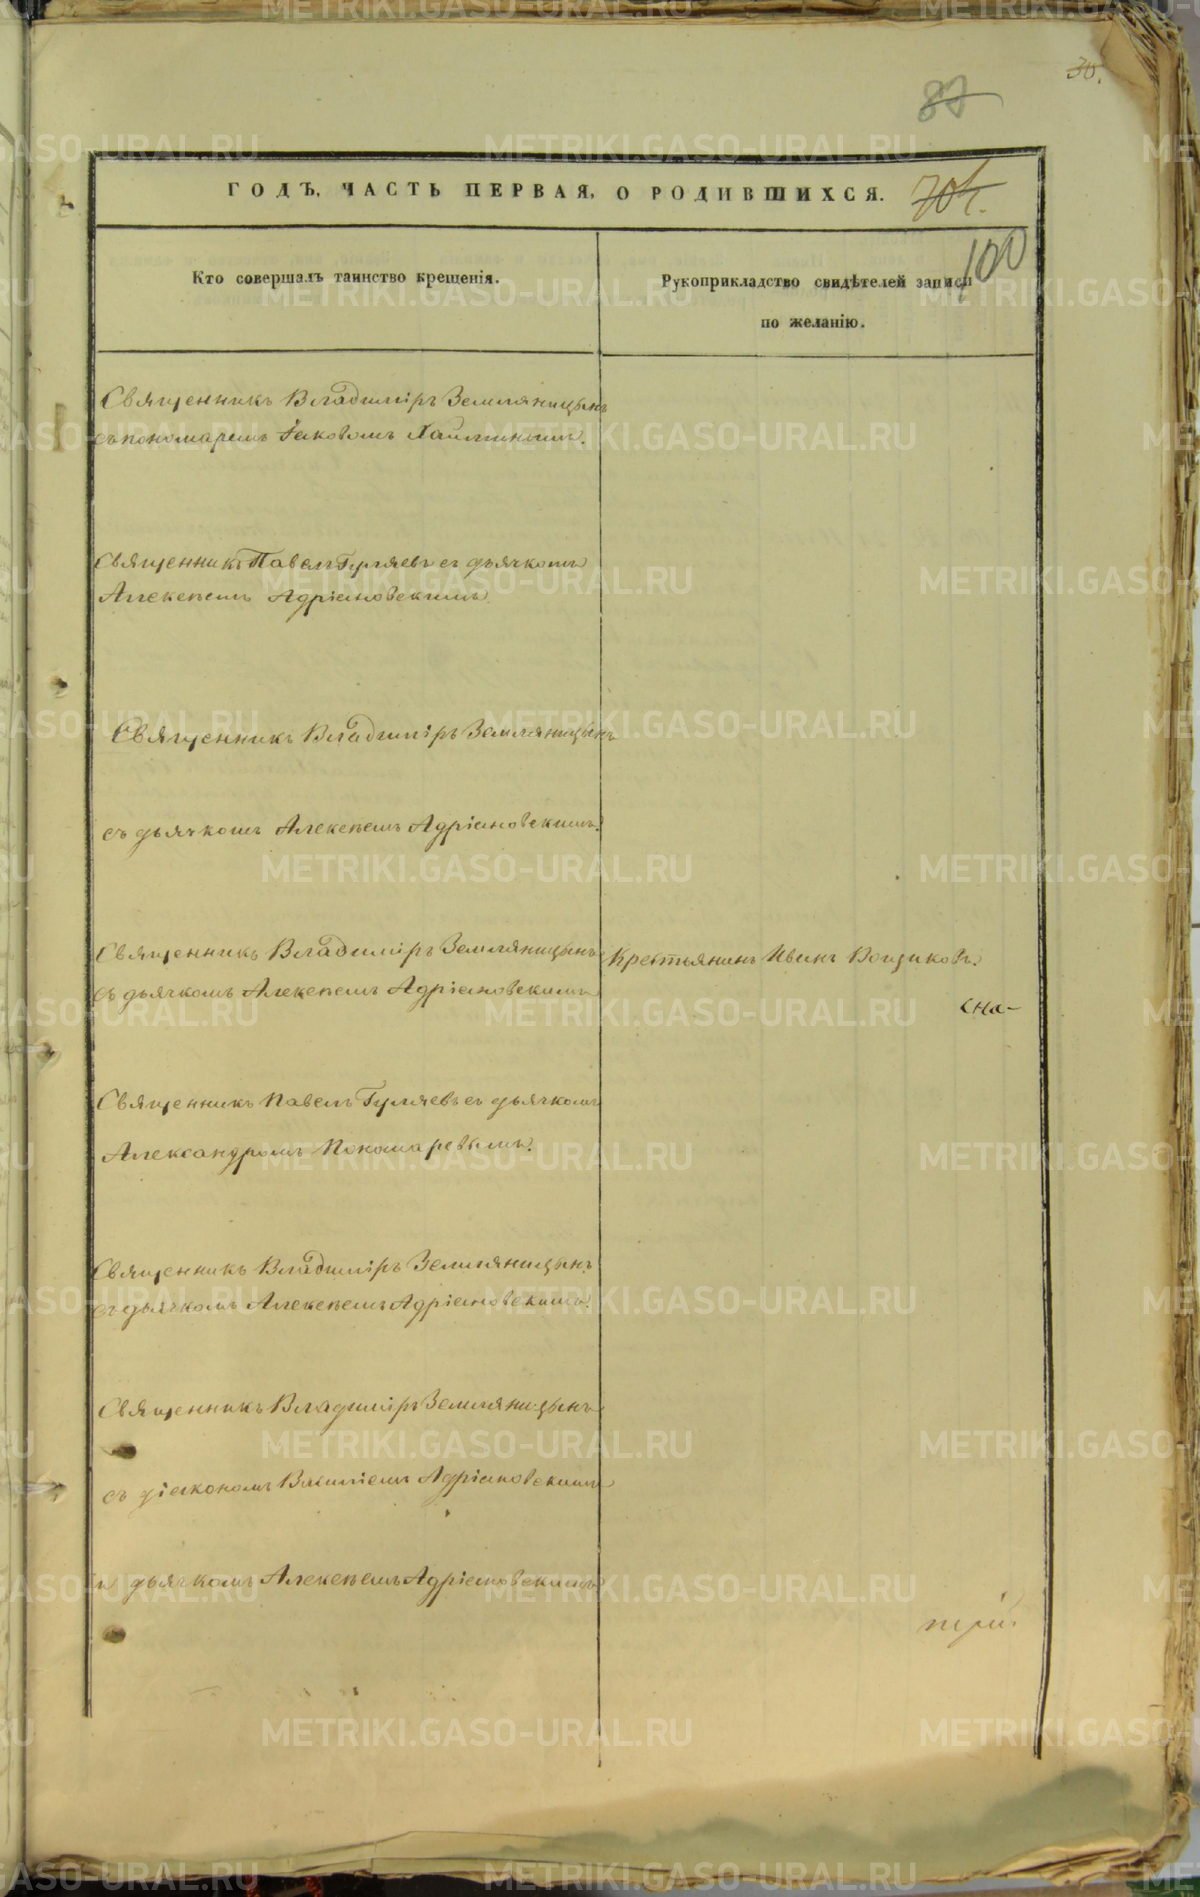 30.
87
ГОДЪ, ЧАСТЬ ПЕРВАЯ, О РОДИВШИХСЯ.
704.
100
Кто совершалъ таинство крещенія.
Рукоприкладство свидѣтелей записи
по желанію.
Священникъ Владиміръ Земляницынъ
съ пономаремъ Іаковомъ
Священникъ Павелъ Гуляевъ съ дьячкомъ
Алексѣемъ Адріановскимъ
Священникъ Владиміръ Земляницынъ
съ дьячкомъ Алексѣемъ Адріановскимъ.
Священникъ Владиміръ Земляницынъ
съ дьячкомъ Алексѣемъ Адріановскимъ
Крестьянинъ Иванъ
Священникъ Павелъ Гуляевъ съ дьячкомъ
Александромъ Пономаревымъ.
Священникъ Владиміръ Земляницынъ
съ дьячкомъ Алексѣемъ Адріановскимъ.
Священникъ Владиміръ Земляницынъ
съ діакономъ Василіемъ Адріановскимъ
и дьячкомъ Алексѣемъ Адріановскимъ
METRIKI.GASO-URAL.RU